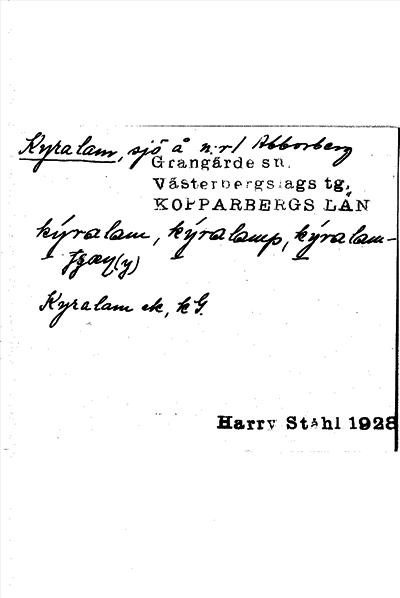 Kyralam, sjö å n:r 1 Abborberg
Grangärde sn.
Västerbergslags tg.
KOPPARBERGS LÄN
kýralam, kýralamp, kýralam-
Kyralam ek, kG.
Harry Ståhl 1928